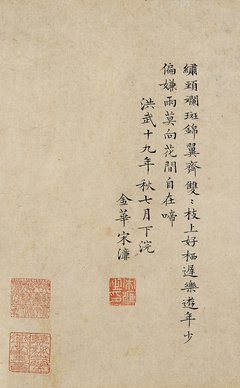 繡頸斕斑錦翼齊雙〻枝上好栖遲樂遊年少
偏嫌雨莫向花間自在啼
洪武十九年秋七月下浣
金華宋濂